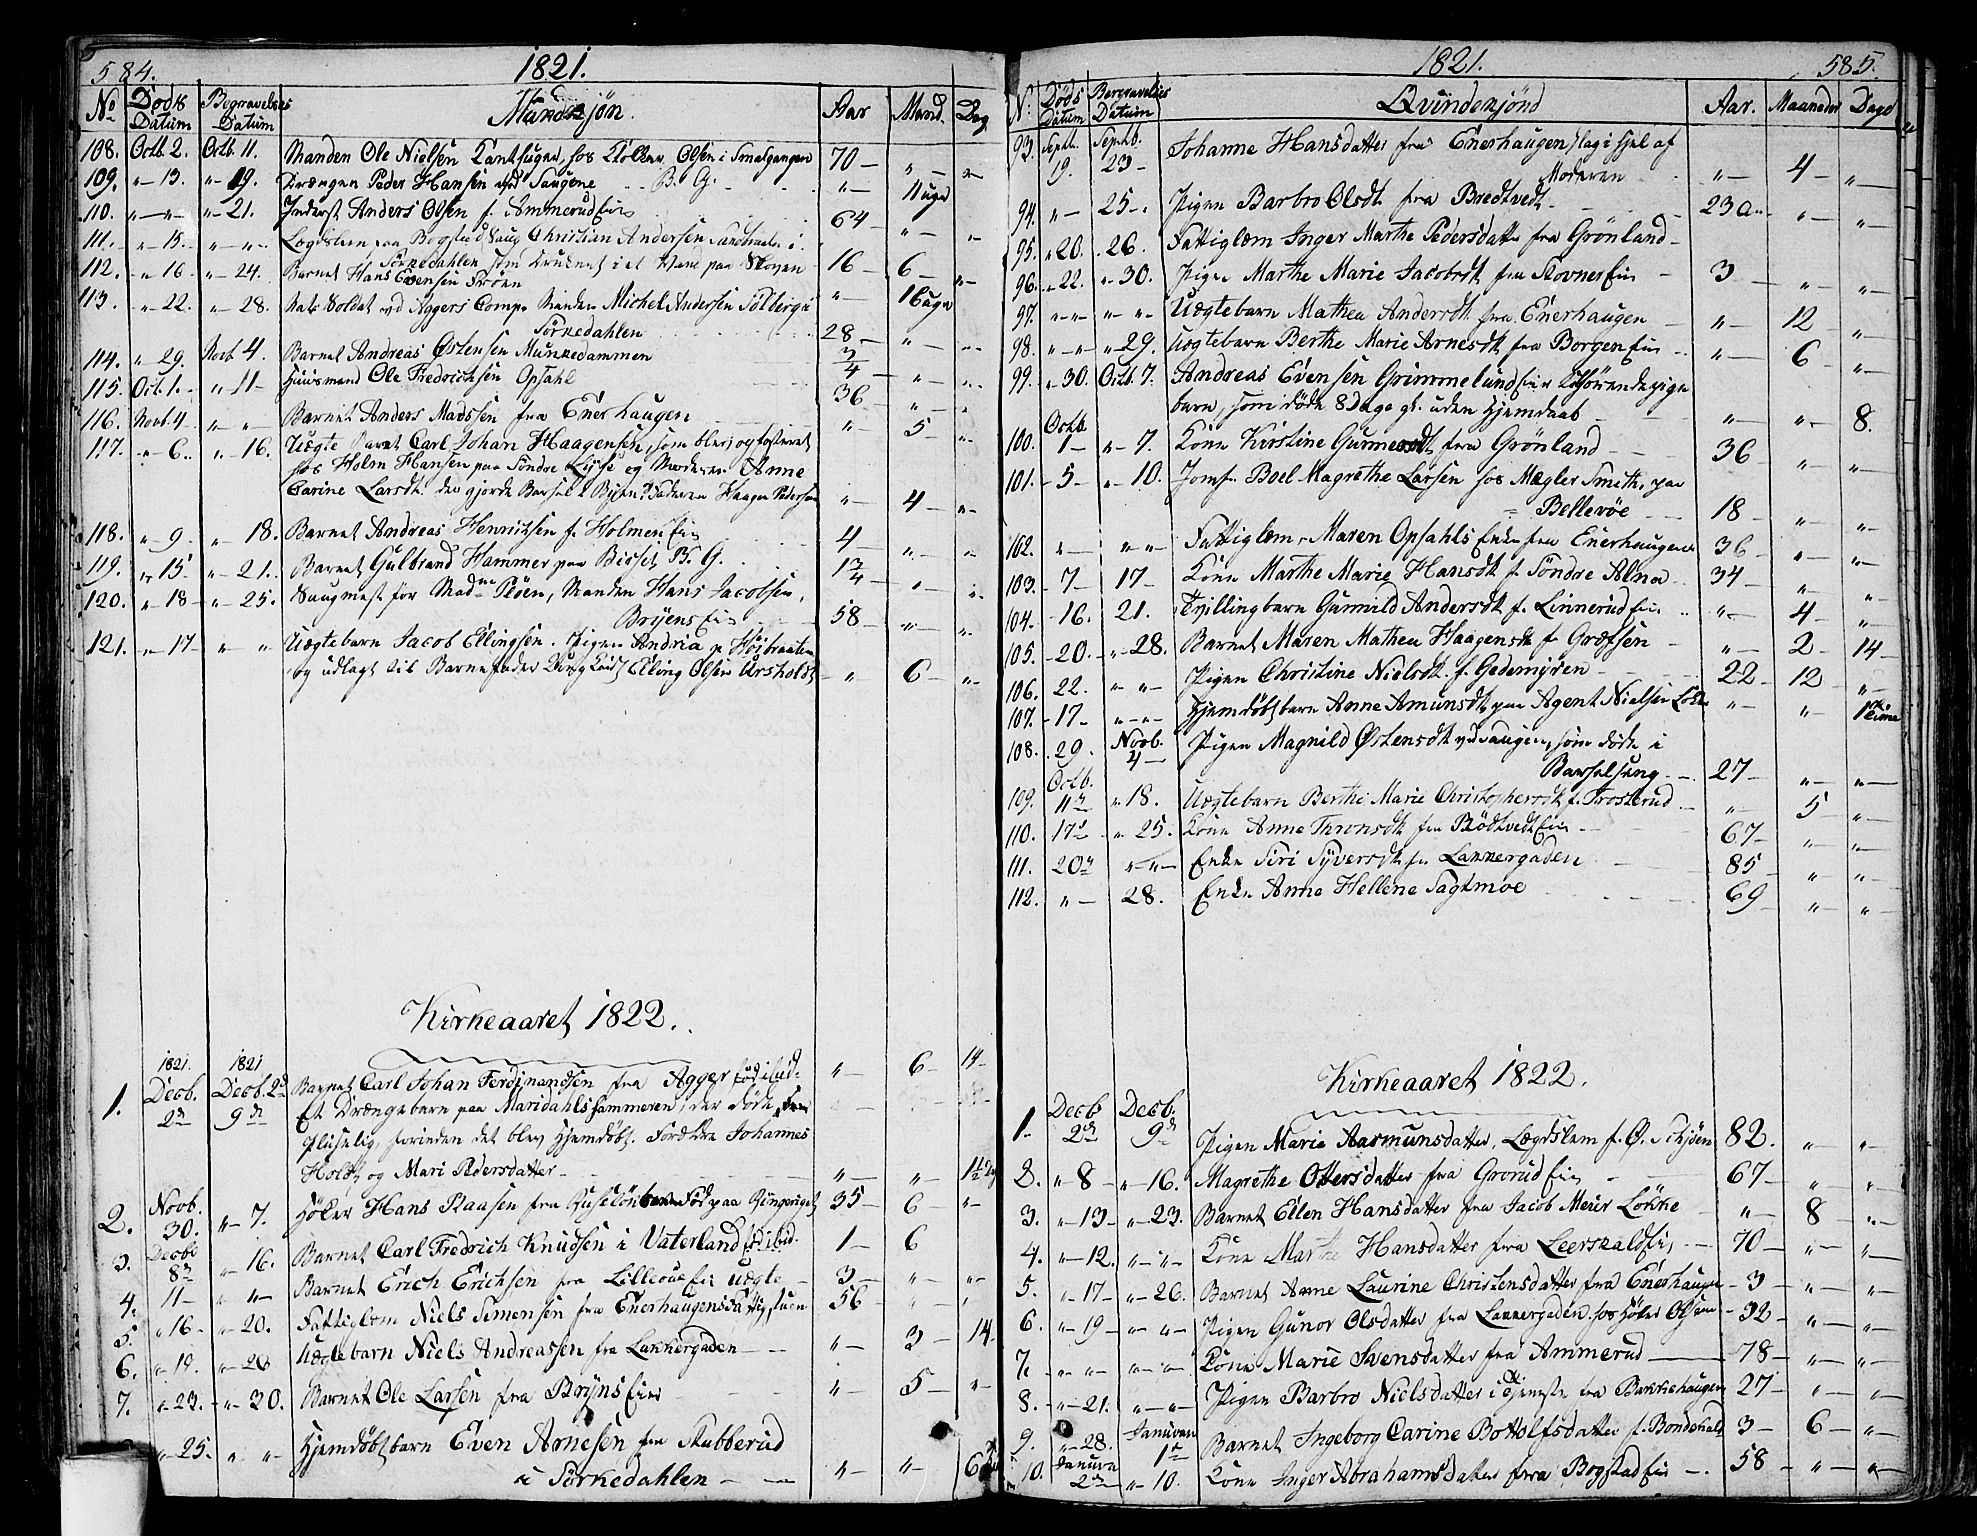 584.
1821.
No Døds Datum Begravelses Datum Mandkjøn. Aar Maand. Dag
108. Octb. 2. Octb. 11. Manden Ole Nielsen hos Olsen i Smalgangen 70 — „ — „
109. „ 13. „ 19. Drængen Peder Hansen ved Saugene B. G. „ — 11 uger
110. „ — „ „ 21. Inderst Anders Olsen f. Ammerud Eie 64 — „ — „
111. „ 15. „ — „ Lægdslem fra Bogstad Saug Christian Andersen i
Sørkedahlen som druknet i et paa 16 — 6 — „
112. „ 16 „ 24. Barnet Hans Evensen „ — 16 uger
113. „ 22. „ 28. Nat: Soldat ved Aggers Comp. Manden Michel Andersen Solberg i
Sørkedahlen 28 — „ — „
114. „ 29. Novb. 4. Barnet Andreas Østensen Munkedammen 3/4 — „ — „
115. Oct. 1. „ 11 — Huusmand Ole Fredrichsen Opsahl 36 — „ — „
116. Novb. 4 „ „ Barnet Anders Madssen fra Enerhaugen „ — 5 — „
117. „ 6. „ 16. Uægte Barnet Carl Johan Haagensen, som blev opfostret
hos Holm Hansen paa Søndre og Moderen Anne
Carine Larsdt. der gjorde Barsel i Byen? Faderen Haagen Pedersen „ — 4 — „
118. „ 9 — „ 18. Barnet Andreas Henrichsen f. Holmen Eie 4 — „ — „
119. „ 15 „ 21. Barnet Gulbrand Hammer paa B. G. 13/4 — „ — „
120. „ 18 — „ 25. Saugmest for Madme Pløen, Manden Hans Jacobsen,
Bryens Eie 58 — „ — „
121. „ 17 — „ „ Uægtebarn Jacob Ellingsen. Pigen Andria p. Høibraaten
og udlagt til Barnefader Elling Olsen „ — 6 — „
Kirkeaaret 1822.
1821. 1821
Decb. Decb. 2d
1. 2d 9de Barnet Carl Johan Ferdinandsen fra Agger „ — 6 — 14 —
Et Drængebarn paa Maridahlshammeren, der døde
pludselig, forinden det blev hjemdøbt. Forældre Johannes
Holt og Mari Pedersdatter — „ — „ —
2. Novb. 30. „ 7. Høker Hans Paasen fra født paa Ringeriget 35 — 6 — „
3. Decbr 8de „ 16. Barnet Carl Fredrich Knudsen i Vaterland 1 — 6
4. 11 — „ „ Barnet Erich Erichsen fra Eie uægte 3 — „ — „
5. „ 16 — „ 20. Fattiglem Niels Simensen fra Enerhaugens Fattigstuen 56 — „ — „
6. „ 19. „ 20 Uægtebarn Niels Andreassen fra Lakkergaden — „ — 3 — 14.
7. „ 23. „ 30. Barnet Ole Larsen fra Bryns Eie „ — 5 — „
„ 25. „ „ Hjemdøbt barn Even Arnesen fra Stubberud
i Sørkedahlen — „ — „ — 6
1821. 585.
No Døds Datum Begravelses Datum Qvindekjønd Aar. Maaneder Dage
93. Septb. 19. Septb. 23 — Johanne Hansdatter fra Enerhaugen, slagi hjel af
Moderen „ — 4 — „
94. „ — 25 — Pigen Barbro Olsdt. fra Bredtvedt 23 a „ — „
95. „ 20. 26. Fattiglem Inger Marthe Pedersdatter fra Grønland —
96. „ 22. „ 30. Pigen Marthe Marie Jacobsdt fra Stovner Eie — 3 — „ — „
97. „ „ „ „ Uægtebarn Mathea Andersdt. fra Enerhaugen — „ — 12 — „
98. „ — „ „ 29. Uægtebarn Berthe Marie Arnesdt. fra Borgen Eie „ — 6 — „
99. „ 30. Octb. 7. Andreas Evensen Grimmelund Eie tilhørende pige
barn, som døde 8 Dage gl. uden hjemdaab „ — „ — 8.
100. Octb. 1 — „ 7. Kone Kirstine Gunnersdt fra Grønland 36 — „ — „
101. 5 — „ 10. Jomfr. Boel Magrethe Larsen hos Mægler Smith, paa
Bellevøe 18 — „ — „
102. „ — „ „ Fattiglem Maren Opsahls Enke fra Enerhaugen 36 — „ — „
103. 7 — 17 — Kone Marthe Marie Hansdt. f. Søndre Alna 34 — „ — „
104. 16. 21. Tvillingbarn Gunnild Andersdt. f. Linnerud Eie „ — 4 — „
105. 20. „ 28. Barnet Maren Mathea Haagensdt. f. Grefsen — „ — 2 — 14 —
106. 22. „ „ Pigen Christine Nielsdt. f. Gedemyren 22 — 12 — „
107. 17 — „ — „ Hjemdøbt barn Anne Amunsdt. paa Agent Nielsen Løkke „ — „ — 1 time
108. 29. Novb. 4 — Pigen Magnild Østensdt. ved Saugene, som døde i
Barselseng 27 — „ — „
109. Octb. 11de „ 18. Uægtebarn Berthe Marie Christophersdt. f. Trosterud „ — 5 — „
110. 17de „ 25. Kone Anne Thronsdt. fra Rødtvedt Eie 67 — „ — „
111. 20de „ „ Enke Siri Syversdt. fra Lakkergaden 85 — „ — „
112. „ — 28. Enke Anne Hellene Sagtmoe 69 — „ — „
Kirkeaaret 1822.
1. Decb 2de Decb. 9de Pigen Marie Aasmunsdatter, Lægdslem f. Ø. 82. „ „
2. „ 8 — „ 16. Magrethe Ottersdatter fra Grorud Eie 67 — „ „
3. „ 13 — „ 23. Barnet Ellen Hansdatter fra Jacob Meier Løkke „ — 8 — „
4. „ 12. „ „ Kone Marthe Hansdatter fra Leerskald Eie 70 — „ — „
5. „ 17 — „ 26. Barnet Anne Laurine Christensdatter fra Enerhaugen 3 — „ — „
6. „ 19 — „ „ Pigen Gunor Olsdatter fra Lakkergaden hos Høker Olsen 32 — „ — „
7. „ „ „ „ Kone Marie Svensdatter fra Ammerud — 78 — „ — „
8. „ 21. „ „ Pigen Barbro Nielsdatter i tjeneste fra Bakkehaugen 27 — „ — „
9. „ 28. Januvari 1te Barnet Ingeborg Carine Bottolfsdatter f. 3 — 6 — „
10. Januva 2de „ 10. Kone Inger Abrahamsdatter fra Bogstad Eie 58 — „ — „